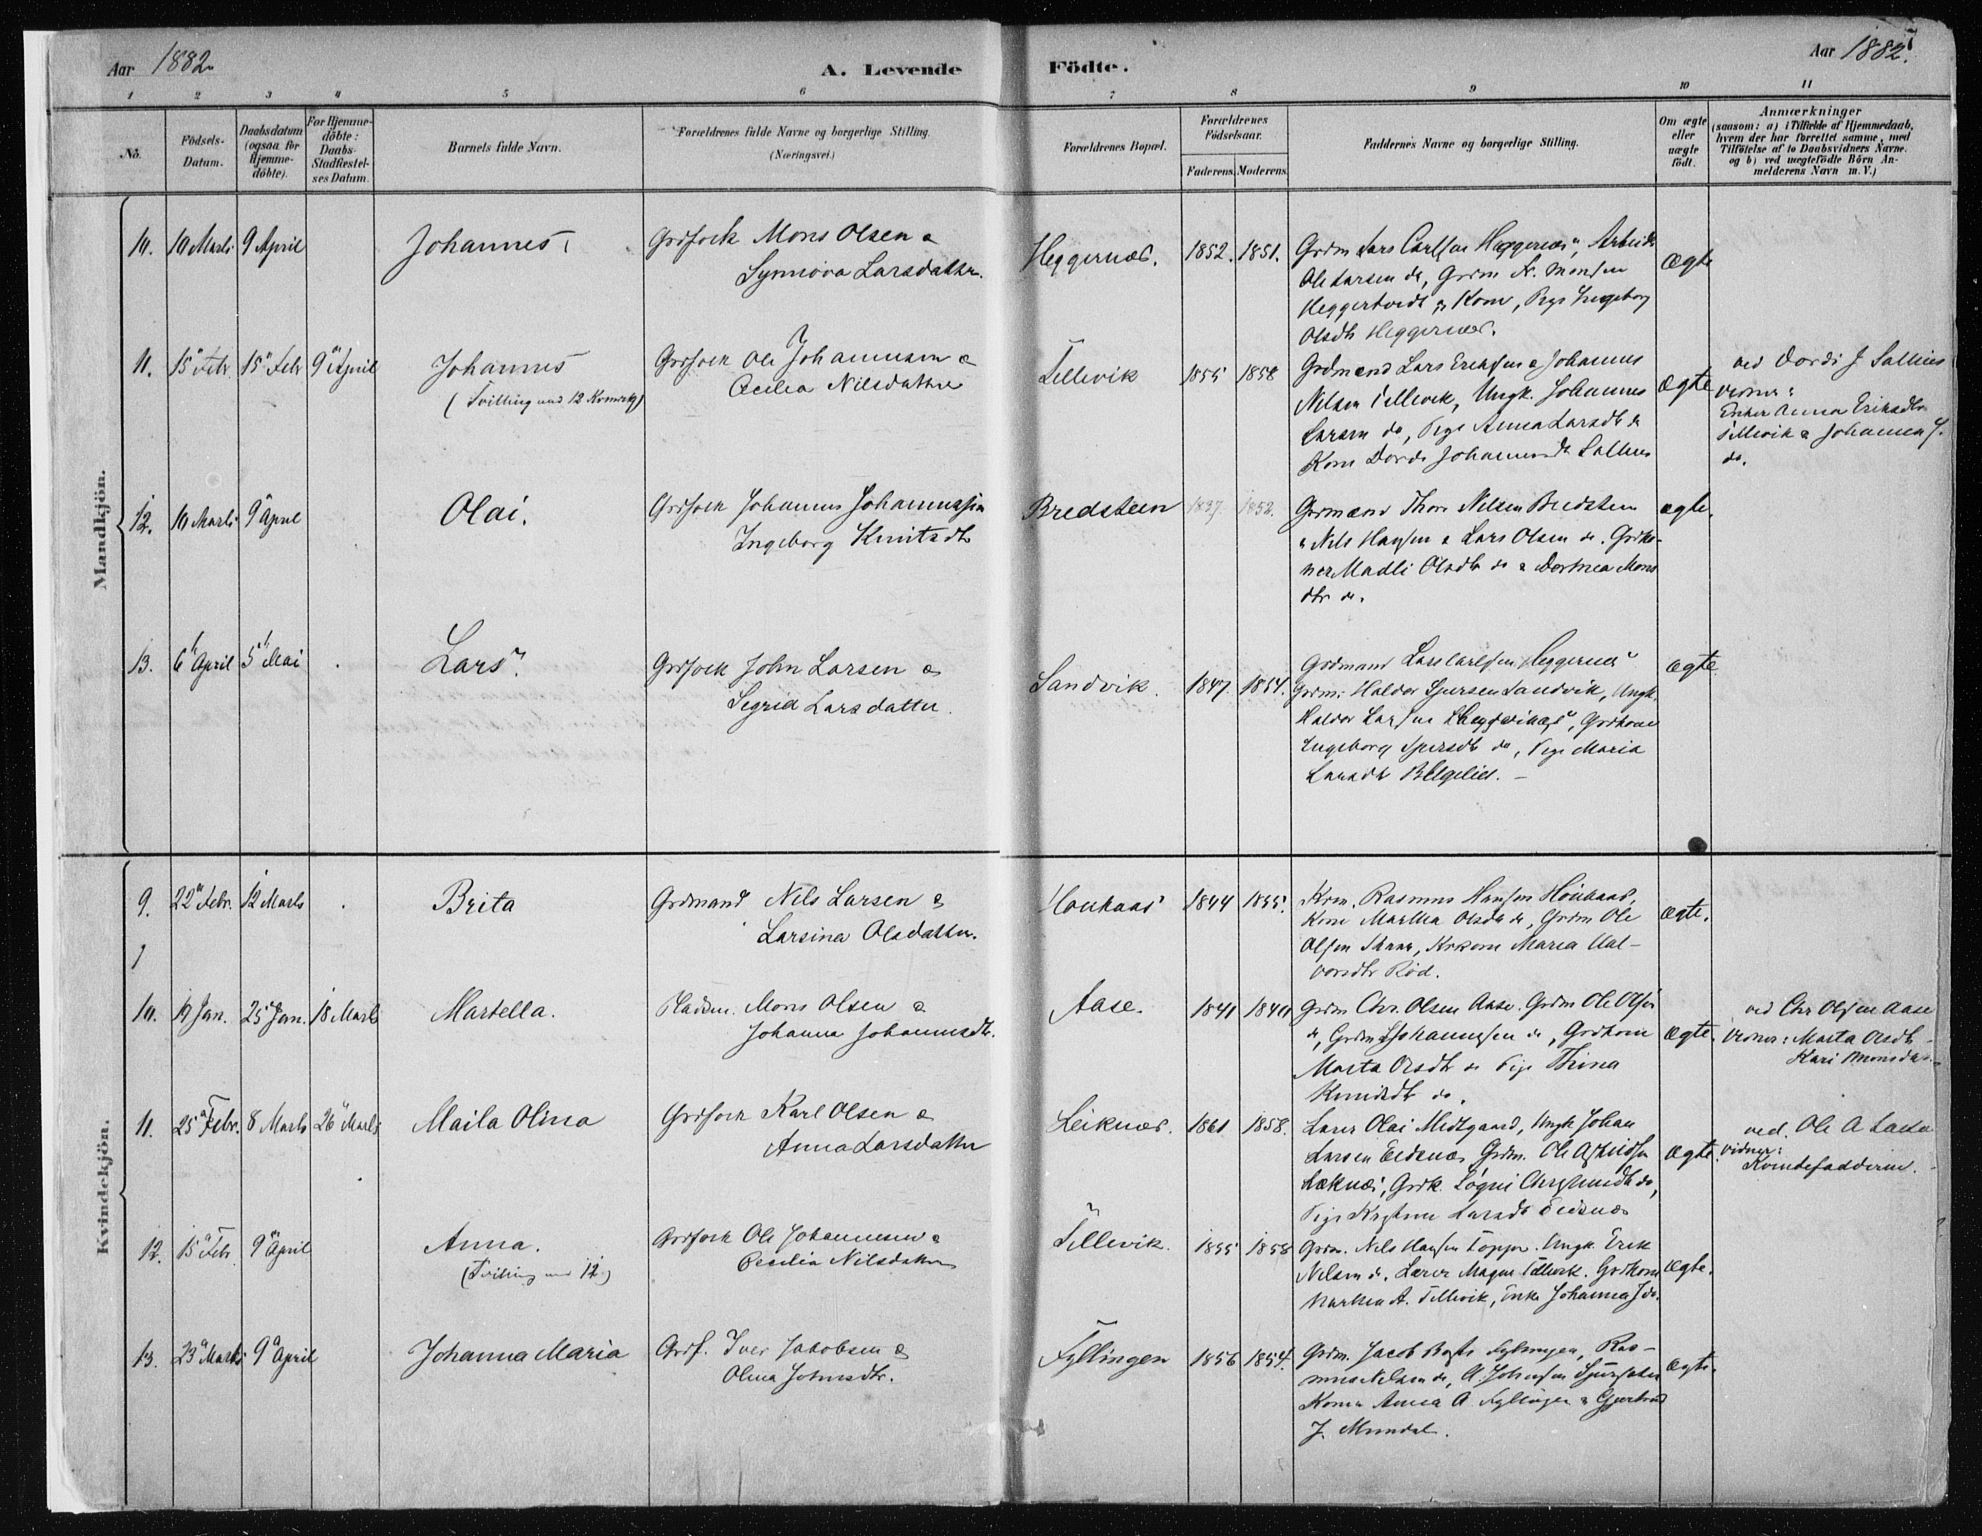 Aar 1882.
A. Levende
Födte.
Aar 1882.
7
1 2 3 4 5 6 7 8 9 10 11
No.
Födsels-
Datum.
Daabsdatum
(ogsaa for
Hjemme-
döbte).
For Hjemme-
döbte:
Daabs-
Stadfæstel-
ses Datum.
Barnets fulde Navn.
Forældrenes fulde Navne og borgerlige Stilling.
(Næringsvei.)
Forældrenes Bopæl.
Forældrenes
Födselsaar.
Faderens. Moderens.
Faddernes Navne og borgerlige Stilling.
Om ægte
eller
uægte
født.
Anmærkninger
(saasom: a) i Tilfælde af Hjemmedaab,
hvem der har forrettet samme, med
Tilföielse af to Daabsvidners Navne.
og b) ved uægtefödte Börn An-
melderens Navn m. V.)
Mandkjön.
10. 10 Marts 9 April
Johannes
Grdfork Mons Olsen &
Synnøva Larsdatter.
Heggernæs. 1852. 1851.
Grdm Lars Carlsen Heggernæs, Arbeids
Ole Larsen do, Grdm N. Monsen
Heggertvedt & Kone, Pige Ingeborg
Olsdtr Heggernæs.
ægte
11. 15 Febr. 15 Febr 9 April
Johannes
(Tvilling med 12 Kvindekj)
Grdfork Ole Johannesen &
Cecilia Nilsdatter
Tellevik 1855 1858
Grdmænd Lars Eriksen & Johannes
Nilsen Tellevik, Ungk. Johannes
Larsen do, Pige Anna Larsdtr do
Kone Dordi Johannesdtr
ægte
ved Dordi J
Vidner:
Enker Anna Eriksdtr
Tellevik & Johanna J.
do.
12. 10 Marts 9 April
Olai.
Grdfork Johannes Johannessen
Ingeborg Knutsdtr
Bredsteen 1837. 1852.
Grdmænd Thore Nilsen Bredsteen
& Nils Hansen & Lars Olsen do. Grdko-
ner Madli Olsdtr do & Dorthea Mons
dtr do.
ægte.
13. 6 April 5 Mai
Lars
Grdfork John Larsen &
Sigrid Larsdatter.
Sandvik. 1847. 1854.
Grdmand Lars Carlsen Heggernæs
Grdm: Haldor Sjursen Sandvik, Ungk.
Haldor Larsen Heggernæs, Grdkone
Ingeborg Sjursdtr do, Pige Maria
Larsdtr
ægte
Kvindekjön.
9. 22 Febr. 12 Marts
Brita
Grdmand Nils Larsen &
Larsina Olsdatter.
Haukaas 1844 1855.
Krm. Rasmus Hansen Houkaas,
Kone Martha Olsdtr do, Grdm Ole
Olsen, Kone Maria Hal-
vorsdtr Rød.
ægte.
10. 19 Jan. 25 Jan. 18 Marts
Martella.
Pladsm. Mons Olsen &
Johanna Johannesdtr.
Aase. 1841 1840
Grdm Chr. Olsen Aase. Grdm Ole Olsen
do, Grdm Johannesen do, Grdkone
Marta Olsdtr do Pige Thrina
Knudsdtr do.
ægte.
ved Chr Olsen Aase
Vidner: Marta Olsdtr
Kari Monsdtr.
11. 25 Febr. 8 Marts 26 Marts
Maila Olina
Grdfork Karl Olsen &
Anna Larsdatter
Leiknæs. 1861 1858.
Lærer Olai Midtgaard, Ungk Johan
Larsen Eidsnæs Grdm. Ole
Leknæs, Grdk. do,
Pige Larsdtr Eidsnæs
ægte.
ved. Ole A
Vidner:
Kvindefadderne.
12. 15 Febr 9 April
Anna.
(Tvilling med 12)
Grdfork Ole Johannesen &
Cecilia Nilsdatter
Tellevik. 1855 1858
Grdm. Nils Hansen Toppe. Ungk. Erik
Nilsen do. Lærer Magne Tellevik. Grdkone
Martha A. Tellevik, Enke Johanna J do.
ægte.
13. 23 Marts 9 April
Johanna Maria
Grdf. Iver Jakobsen &
Olina Johnsdtr.
Fyllingen 1856 1854.
Grdm. Jacob Fyllingen, Ras-
mus Nilsen do, A. Johnsen
Kone Anna A Fyllingen &
J. Mundal.
ægte.